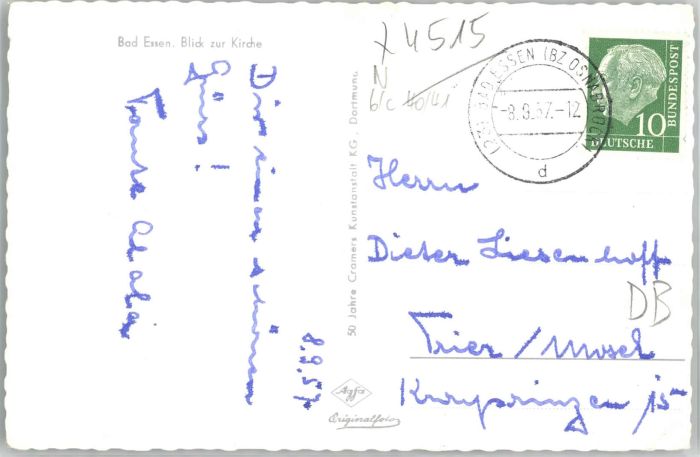 Bad Essen. Blick zur Kirche
8.9.57
Dir einen schönen
Gruss!
Tante
50 Jahre Cramers Kunstanstalt KG., Dortmund
Agfa
Originalfoto
x 4515
N
b/c 40/41
(23) BAD ESSEN (BZ OSNABRÜCK)
-8.9.57.-12
d
10
DEUTSCHE
BUNDESPOST
Herrn
Dieter Liesenhoff
DB
Trier/Mosel
15